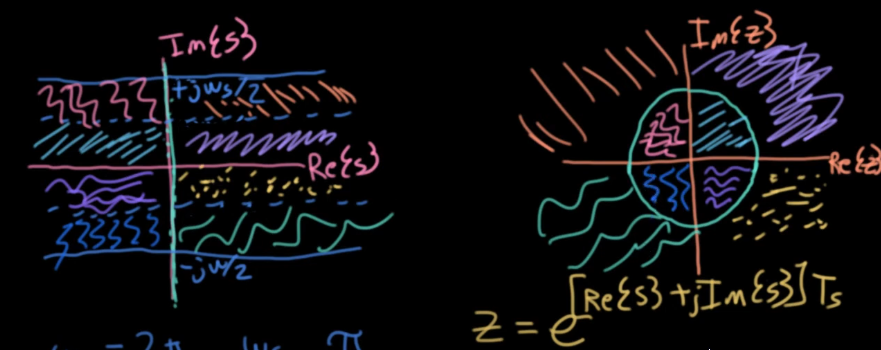 Im{s}
+jws/2
Re{s}
-jw/2
Im{z}
Re{z}
z = e^[Re{s} + jIm{s}]Ts